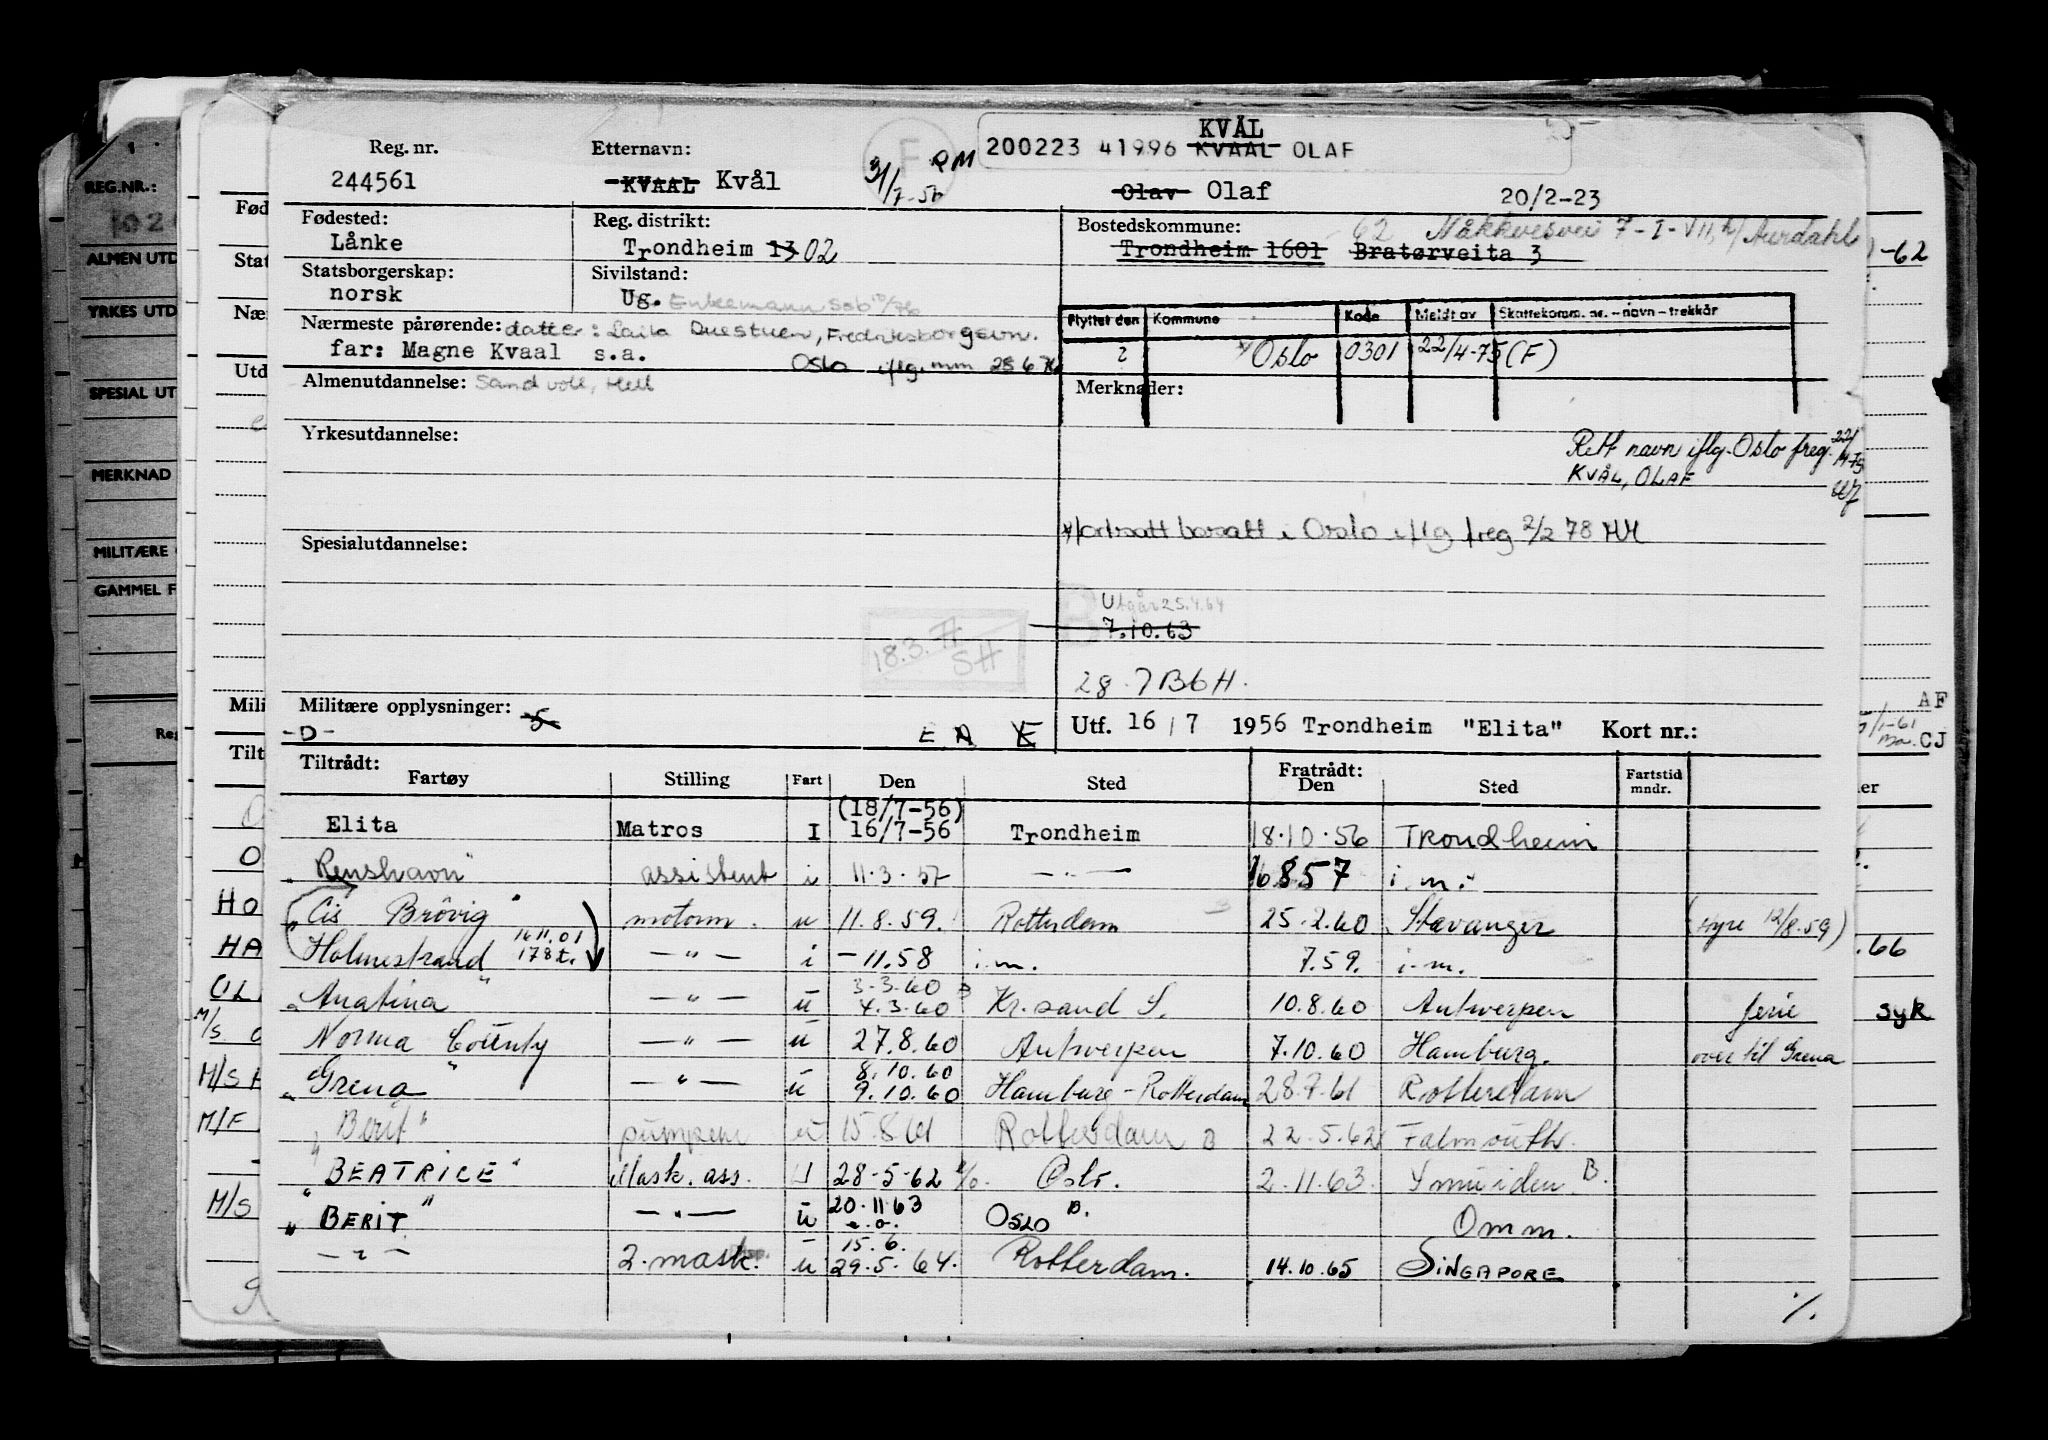 KVÅL
200223 41996 KVAAL OLAF
Reg. nr. Etternavn:
244561 KVAAL Kvål 31/7-56 RM Olav Olaf 20/2-23
Fødested: Reg. distrikt: Bostedskommune: 62 Nåkkvesvei 7-I-VII, h/Aurdahl
Lånke Trondheim 13 02 Trondheim 1601 Bratørveita 3
-62
Statsborgerskap: Sivilstand:
norsk Ug. Enkemann
Nærmeste pårørende: datter: Laila Duestuen, Fredriksborgsvn.
far: Magne Kvaal s.a. Oslo iflg. mm
Flyttet den Kommune Kode Meldt av Skattekomm. nr. - navn - trekkår
? Oslo 0301 22/4-75 (F)
Almenutdannelse: Sandvoll, Hell Merknader:
Yrkesutdannelse: Rett navn iflg. Oslo freg. 22/4-75
KVÅL, OLAF
fortsatt bosatt i Oslo iflg freg 2/2 78
Spesialutdannelse:
Utgår 25.4.64
7.10.63
18.3.77
SH
28.7 B6H.
Militære opplysninger: 5
-D- E A E
Utf. 16/7 1956 Trondheim "Elita" Kort nr.:
Tiltrådt: Fratrådt:
Fartøy Stilling Fart Den Sted Den Sted Fartstid mndr.
(18/7-56)
Elita Matros I 16/7-56 Trondheim 18.10.56 Trondheim
"Renshavn" assistent i 11.3.57 — " — 16 8 57 i.m.
"Cis Brövig" motorm. u 11.8.59. Rotterdam 25.2.60 Stavanger (Hyre 12/8.59)
Holmestrand 16 11.01 178 t. — " — i -11.58 i.m. 7.59. i.m.
3.3.60
"Anatina" — " — u 4.3.60 Kr.sand S. 10.8.60 Antwerpen ferie
Norma County — " — u 27.8.60 Antwerpen 7.10.60 Hamburg. over til Grena
8.10.60
"Grena" — " — u 9.10.60 Hamburg - Rotterdam 28.7.61 Rotterdam
"Berit" pumpem u 15.8.61 Rotterdam B 22.5.62 Falmouth.
"BEATRICE" Mask. ass. U 28-5-62 Oslo. 2.11.63. Ymuiden. B.
"BERIT" — " — u 20.11.63 OSLO B. Omm.
15.6.
— " — 2. mask. u 29.5.64. Rotterdam. 14.10.65 SINGAPORE
REG.NR.:
ALMEN UTD
YRKES UTD
SPESIAL UT
MERKNAD
MILITÆRE
GAMMEL F
Fød
Stat
Nær
Utd
Mili
Tilt
HO
HA
OL
M/S
M/S
M/F
M/S
AF
CJ
.66
syk